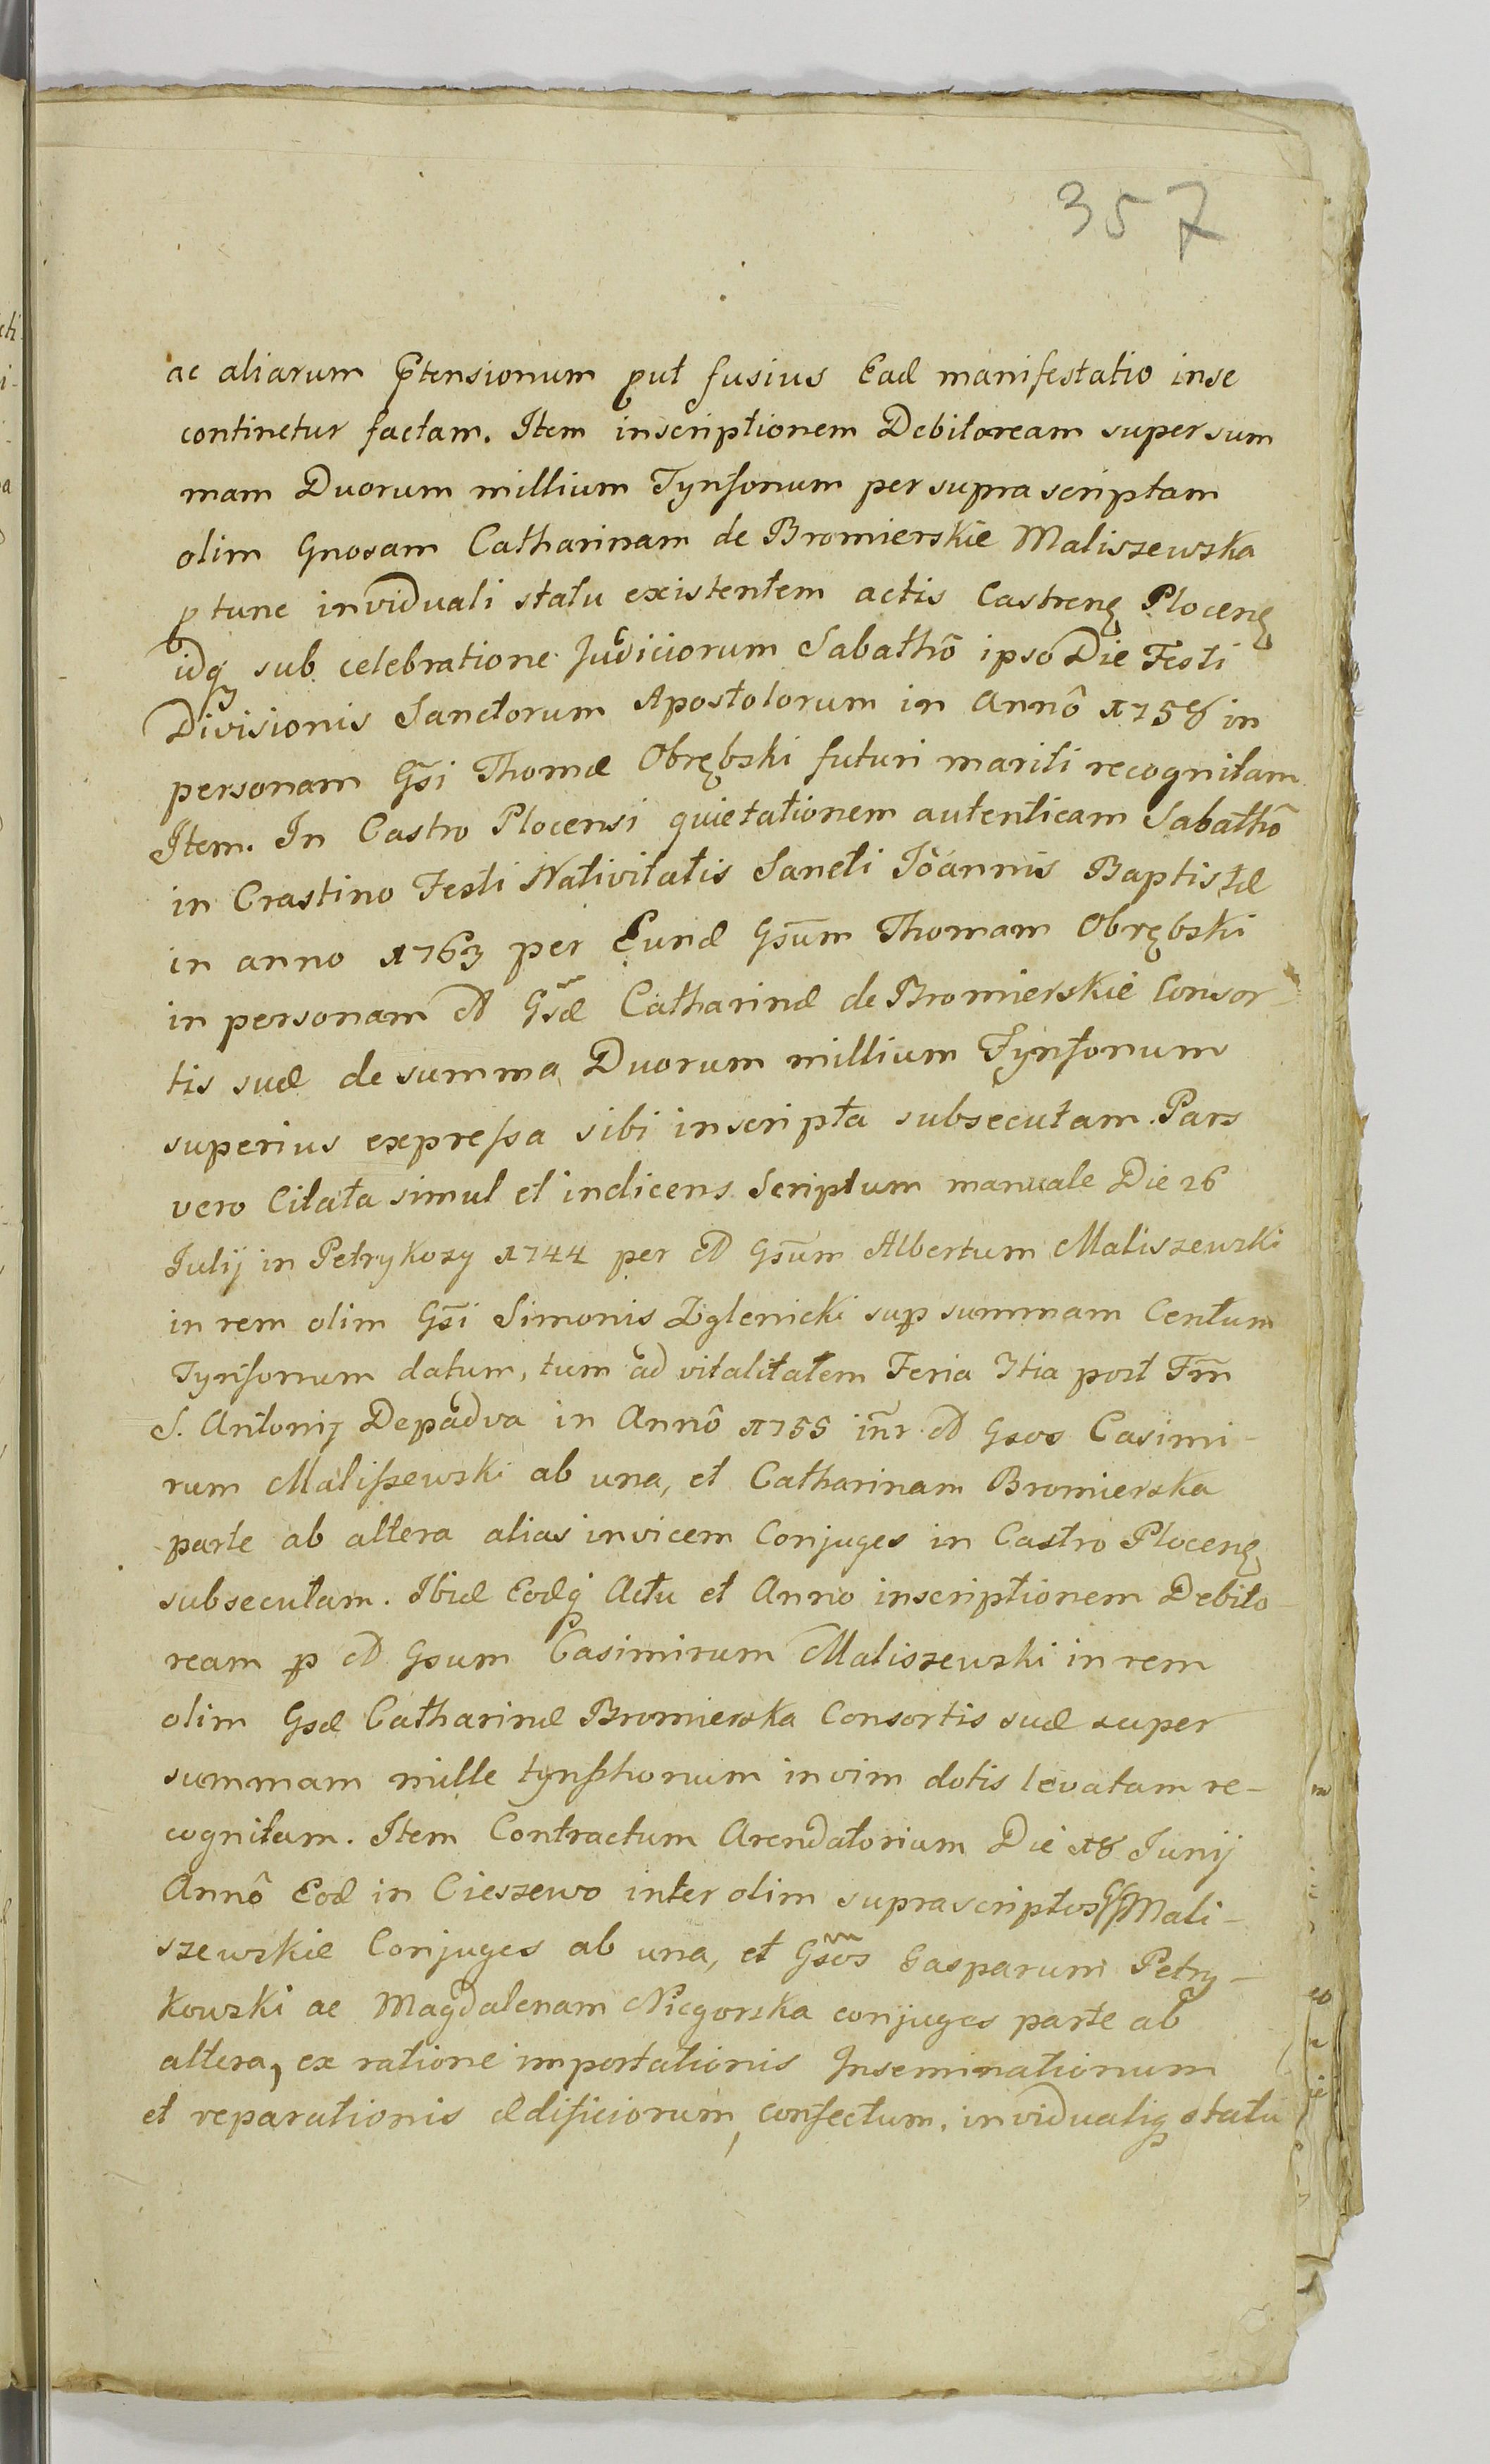 357
ac aliarum p̄tensionum put fusius Ead manifestatio inse
continetur factam. Item inscriptionem Debitoream super sum
mam Duorum millium Tynfonum per supra scriptam
olim Gnosam Catharinam de Bromierskie Maliszewska
p tunc in viduali statu existentem actis Castrenẽ Plocenẽ
idq sub celebratione Judiciorum Sabathô ipsô Die Festi
Divisionis Sanctorum Apostolorum in Annô 1758 in
personam Gs̄i Thomæ Obrębski futuri mariti recognitam
Item. In Castro Plocensi quietationem autenticam Sabathô
in Crastino Festi Nativitatis Sancti Ioannis Baptistæ
in anno 1763 per Eund Gs̄um Thomam Obrębski
in personam M Gs̃æ Catharinæ de Bromierskie Consor
tis suæ de summa Duorum millium Tynfonum
superius expressa sibi inscripta subsecutam. Pars
vero Citata simul et indicens Scriptum manuale Die 26
Iulij in Petrykozy 1744 per M Gs̄um Albertum Maliszewski
in rem olim Gs̄i Simonis Zglenicki sup summam Centum
Tynfonum datum, tum ad vitalitatem Feria 3tia post Fm̄
S. Antonij Depadva in Annô 1755 inr̄ M Gsos Casimi-
rum Maliszewski ab una, et Catharinam Bromierska
parte ab altera alias invicem Conjuges in Castro Plocenẽ
subsecutam. Ibid Eodq Actu et Anno inscriptionem Debito-
ream p M Gsum Casimirum Maliszewski in rem
olim Gsæ Catharinæ Bromierska Consortis suæ super
summam mille tynfhonum in vim dotis levatam re-
cognitam. Item Contractum Arendatorium Die 18 Iunij
Annô Eod in Cieszewo inter olim suprascriptos GG Mali-
szewskie Conjuges ab una, et Gs̃os Gasparum Petry-
kowski ac Magdalenam Niegorska conjuges parte ab
altera, ex ratione importationis Inseminationum
et reparationis ædificiorum, confectum, in vidualiq statu